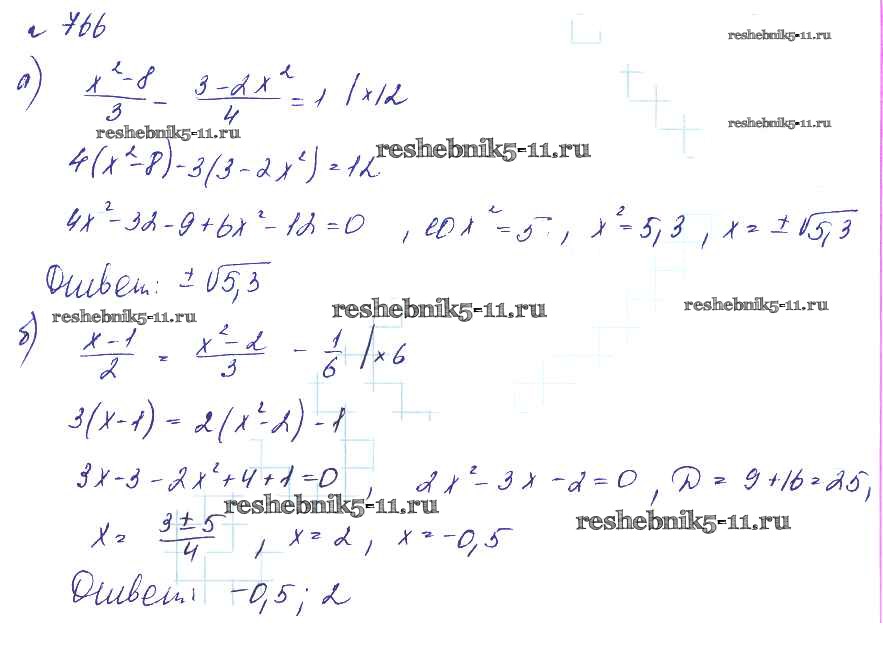 № 766
reshebnik5-11.ru
а) (x²-8)/3 - (3-2x²)/4 = 1 /×12
reshebnik5-11.ru
reshebnik5-11.ru
reshebnik5-11.ru
4(x²-8)-3(3-2x²)=12
4x²-32-9+6x²-12=0 , 10x²=5 , x²=5,3 , x=±√5,3
Ответ: ±√5,3
reshebnik5-11.ru
reshebnik5-11.ru
reshebnik5-11.ru
б) (x-1)/2 = (x²-2)/3 - 1/6 /×6
3(x-1)=2(x²-2)-1
3x-3-2x²+4+1=0 , 2x²-3x-2=0 , D=9+16=25,
reshebnik5-11.ru
reshebnik5-11.ru
x= (3±5)/4 , x=2 , x=-0,5
Ответ: -0,5; 2